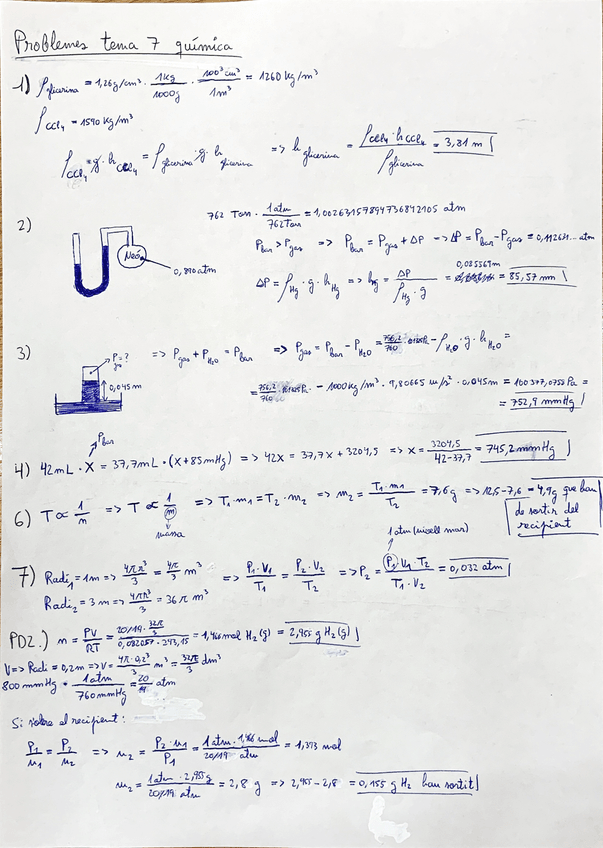 Problemes tema 7 química
1) ρglicerina = 1,26g/cm³ · 1kg/1000g · 100³cm³/1m³ = 1260 kg/m³
ρCCl₄ = 1590 kg/m³
ρCCl₄·g·hCCl₄ = ρglicerina·g·hglicerina => hglicerina = ρCCl₄·hCCl₄/ρglicerina = 3,81 m
2) 762 Torr · 1atm/762Torr = 1,00263157894736842105 atm
Neó
0,890 atm
Pbar > Pgas => Pbar = Pgas + ΔP => ΔP = Pbar - Pgas = 0,112631... atm
ΔP = ρHg · g · hHg => hHg = ΔP/ρHg · g = 0,085569m = 85,57 mm
3) P=? gas
0,045m
=> Pgas + PH₂O = Pbar => Pgas = Pbar - PH₂O = 756,2/760 - ρH₂O · g · hH₂O =
= 756,2/760 - 1000kg/m³ · 9,80665 m/s² · 0,045m = 100377,0752Pa =
= 752,9 mmHg
Pbar
4) 42mL · X = 37,7mL · (X+85mmHg) => 42X = 37,7X + 3204,5 => X = 3204,5/42-37,7 = 745,2 mmHg
6) T ∝ 1/n => T ∝ 1/m => T₁·m₁ = T₂·m₂ => m₂ = T₁·m₁/T₂ = 7,6g => 12,5-7,6 = 4,9g que han
de sortir del
recipient
massa
1 atm (nivell mar)
7) Radi₁ = 1m => 4πR³/3 = 4π/3 m³ => P₁·V₁/T₁ = P₂·V₂/T₂ => P₂ = P₁·V₁·T₂/T₁·V₂ = 0,032 atm
Radi₂ = 3m => 4πR³/3 = 36π m³
PD2.) n = PV/RT = 20/19 · 32π/3 / 0,082057 · 293,15 = 1,466 mol H₂(g) = 2,955 g H₂(g)
V => Radi = 0,2m => V = 4π·0,2³/3 m³ = 32π/3 dm³
800 mmHg · 1atm/760mmHg = 20/19 atm
Si s'obre el recipient:
P₁/n₁ = P₂/n₂ => n₂ = P₂·n₁/P₁ = 1atm · 1,466 mol/20/19 atm = 1,393 mol
m₂ = 1atm · 2,955g/20/19 atm = 2,8 g => 2,955-2,8 = 0,155 g H₂ han sortit